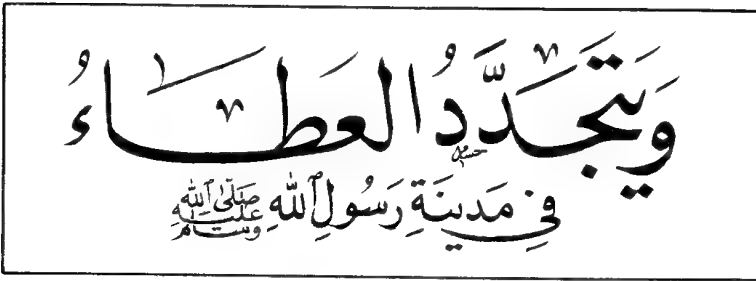 وَيَتَجَدَّدُ العَطَاءُ
في مَدِينَةِ رَسُولِ اللهِ صلى الله عليه وسلم